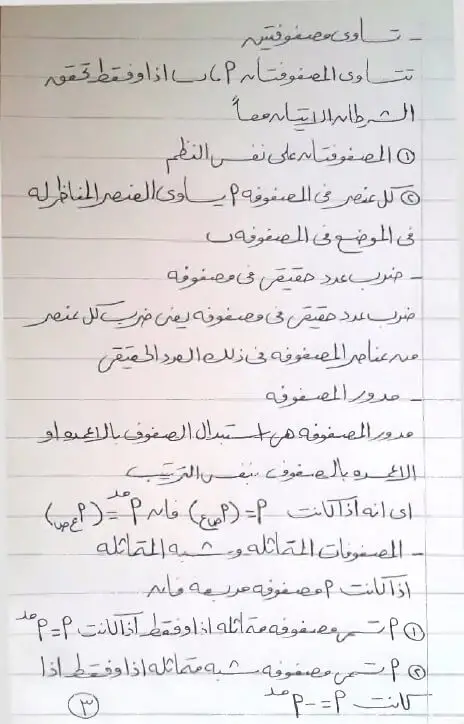 - تساوى مصفوفتين
تتساوى المصفوفتان م ، ب اذا وفقط تحقق
الشرطان الاتيان معاً
① المصفوفتان على نفس النظم
② كل عنصر فى المصفوفه م يساوى العنصر المناظر له
فى الموضع فى المصفوفه ب
- ضرب عدد حقيقى فى مصفوفه
ضرب عدد حقيقى فى مصفوفه يعنى ضرب كل عنصر
من عناصر المصفوفه فى ذلك العدد الحقيقى
- مدور المصفوفه
مدور المصفوفه هى استبدال الصفوف بالاعمده او
الاعمده بالصفوف بنفس الترتيب
اى انه اذا كانت م = (م ص ع) فان م مد = (م ع ص)
- المصفوفات المتماثله وشبه المتماثله
اذا كانت م مصفوفه مربعه فان
① م تسمى مصفوفه متماثله اذا وفقط اذا كانت م = م مد
② م تسمى مصفوفه شبه متماثله اذا وفقط اذا
كانت م = - م مد
٣